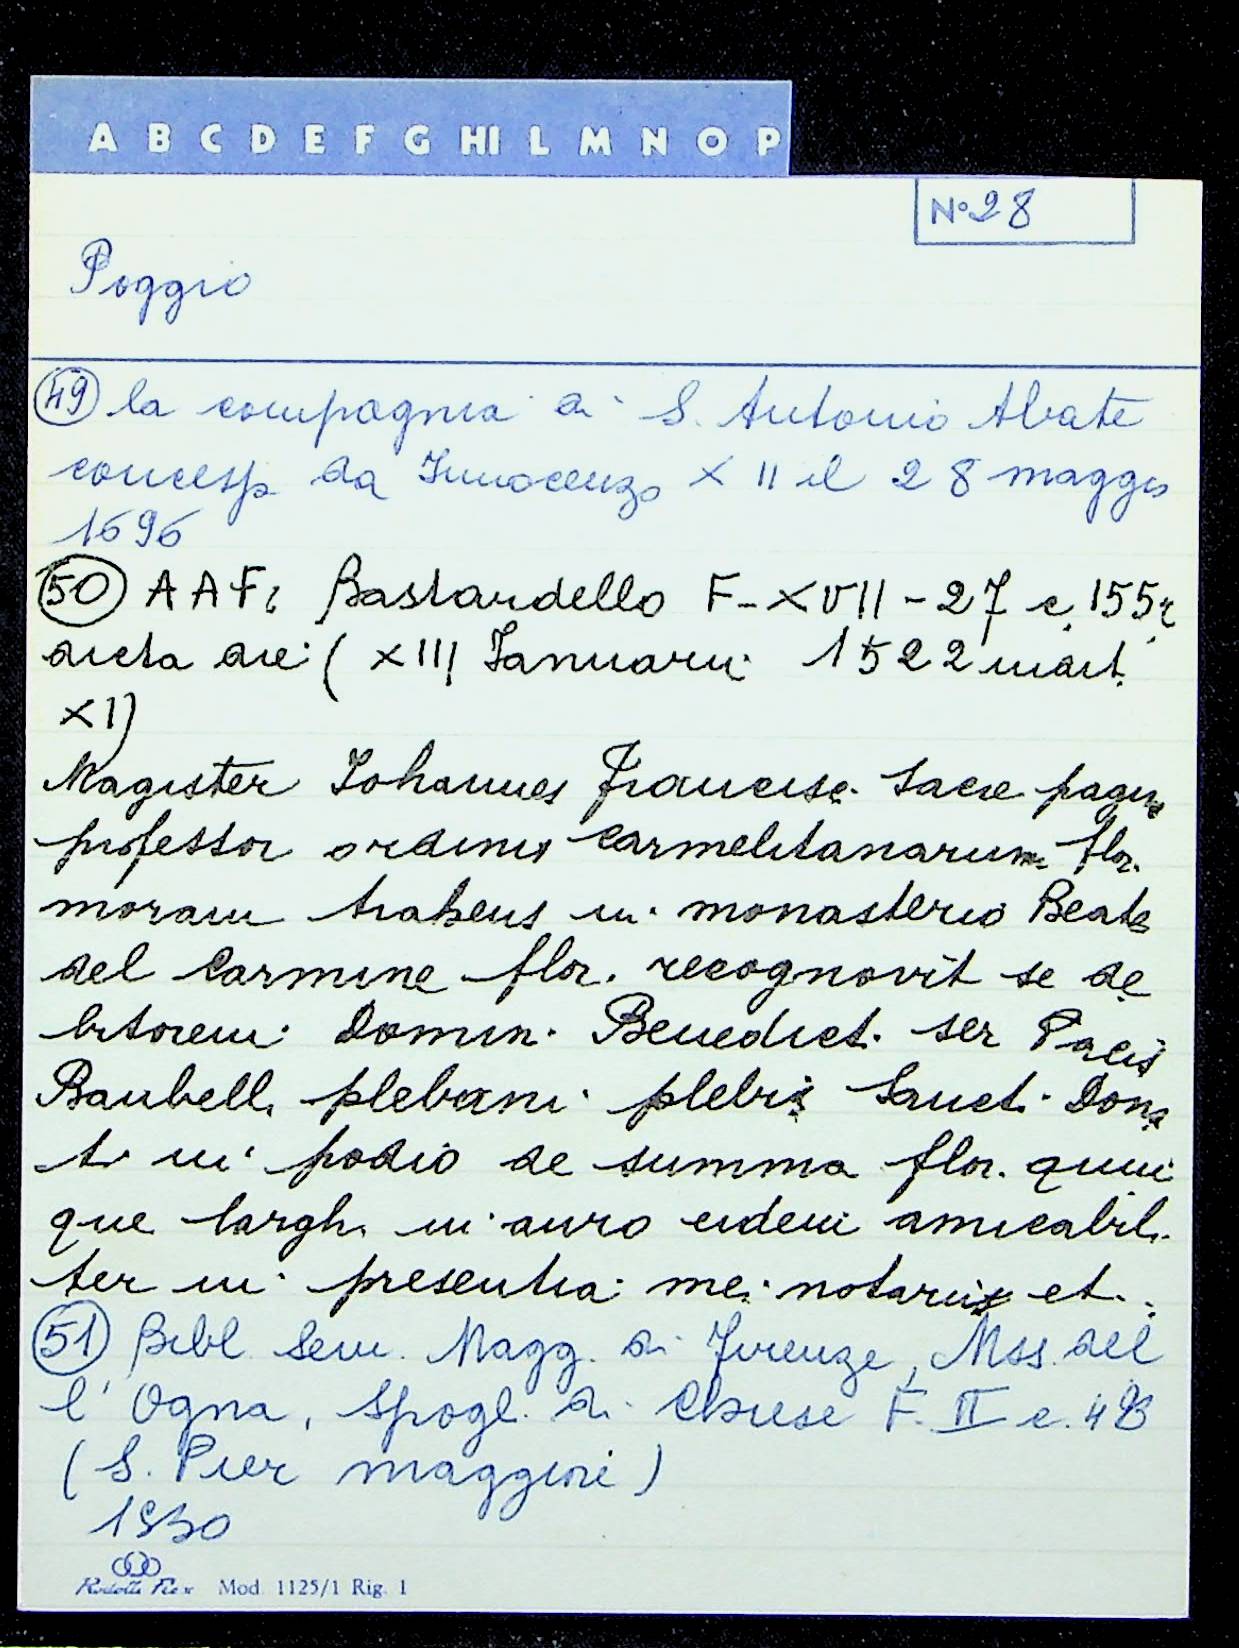 A B C D E F G HI L M N O P
N° 28
Poggio
49 la compagnia di S. Antonio Abate
concess. da Innocenzo XII il 28 maggio
1696
50 AAFi Bastardello F-XVII-27 c. 155r
dicta die (XIII Januarii 1522 mart.
XI)
Magister Johannes Francisc. Sacre pagine
professor ordinis Carmelitanarum flor.
moram trahens in monasterio Beate
del Carmine flor. recognovit se de
bitorem Domin. Benedict. ser Pacis
Bambelli plebani plebis Sancti Dona
ti in podio de summa flor. quin
que largh. in auro eidem amicabili
ter in presentia mei notarii et.
51 Bibl. Sem. Magg. di Firenze, Mss. del
l'Ogna, Spogl. di Chiese F. II c. 43
(S. Pier maggiore)
Mod. 1125/1 Rig. 1